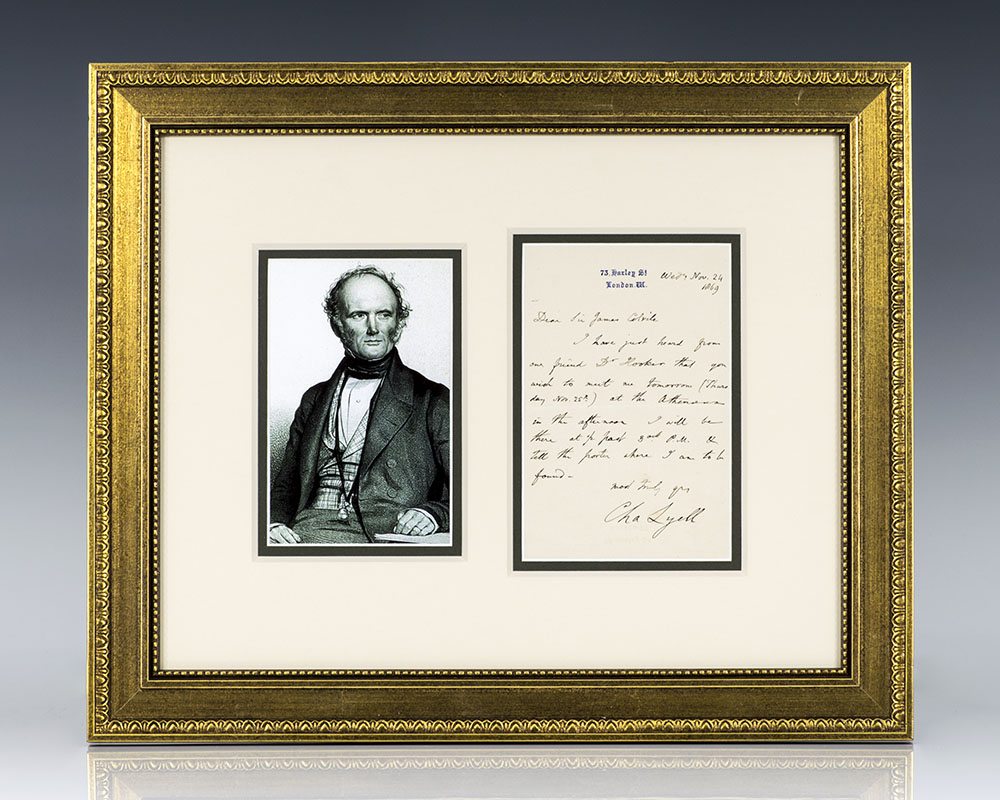 73. Harley St
London. W.
Wedy Nov. 24
1869
Dear Sir James Colvile
I have just heard from
our friend Dr Hooker that you
wish to meet me tomorrow (Thurs
day Nov. 25th.) at the Athenaeum
in the afternoon I will be
there at ½ past 3 P.M. &
tell the porter where I am to be
found—
most truly yrs
Cha Lyell